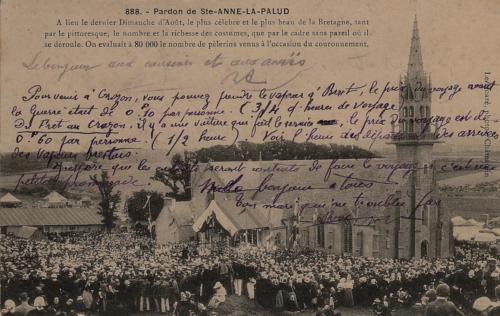 888. - Pardon de Ste-ANNE-LA-PALUD
A lieu le dernier Dimanche d'Août, le plus célèbre et le plus beau de la Bretagne, tant
par le pittoresque, le nombre et la richesse des costumes, que par le cadre sans pareil où il
se déroule. On évaluait à 80 000 le nombre de pèlerins venus à l'occasion du couronnement.
Le bonjour aux cousines et aux amies
Pour venir à Crozon, vous pouvez prendre le vapeur à Brest, le prix du voyage avant
la guerre était de 0f,10 par personne. (3/4 d'heures de voyage)
Du Fret au Crozon, il y a une voiture qui fait le service, le prix du voyage est de
0f,60 par personne. (1/2 heure) Voir l'heure des départs et des arrivées
des Vapeurs
J'espère que les seront contents de faire le voyage c'est une
petite promenade. Mille bonjour à tous